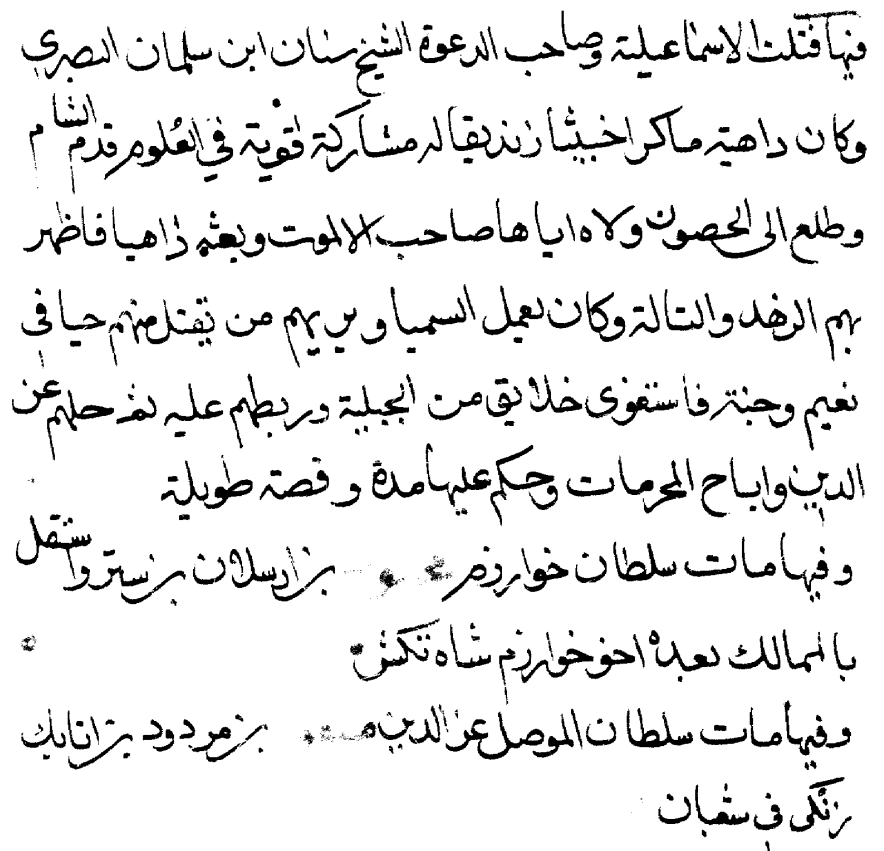 فيها قتلت الاسماعيلية وصاحب الدعوة الشيخ سنان ابن سلمان البصري
وكان داهية ماكرا خبيثا زنديقا له مشاركة قوية في العلوم قدم الشام
وطلع الى الحصون ولاه اياها صاحب الالموت وبعثه داهيا فاظهر
لهم الزهد والتاله وكان يعمل السميا ويريهم من يقتل منهم حيا في
نعيم وجنة فاستغوى خلايق من الجبلية وربطهم عليه ثم حلهم عن
الدين واباح المحرمات وحكم عليها مدة وقصته طويلة
وفيها مات سلطان خوارزم بن ارسلان بن ستر واستقل
بالممالك بعده اخو خوارزم شاه تكش
وفيها مات سلطان الموصل عز الدين بن مودود بن اتابك
زنكي في شعبان